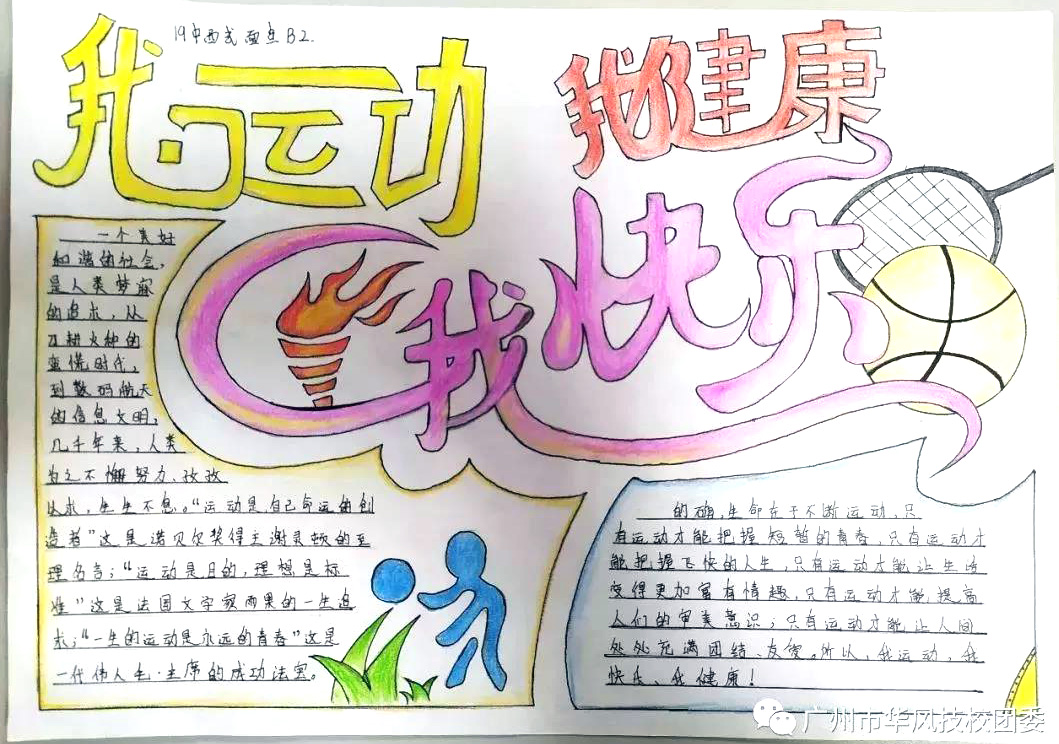 19中西式面点B2.
我运动
我健康
我快乐
一个美好
和谐的社会,
是人类梦寐
的追求,从
刀耕火种的
蛮慌时代,
到数码航天
的信息文明,
几千年来,人类
为之不懈努力、孜孜
以求,生生不息。“运动是自己命运的创
造者”这是诺贝尔奖得主谢灵顿的至
理名言;“运动是目的,理想是标
准”这是法国文学家雨果的一生追
求;“一生的运动是永远的青春”这是
一代伟人毛·主席的成功法宝。
的确,生命在于不断运动,只
有运动才能把握短暂的青春,只有运动才
能把握飞快的人生,只有运动才能让生活
变得更加富有情趣,只有运动才能提高
人们的审美意识;只有运动才能让人间
处处充满团结、友爱。所以,我运动,我
快乐、我健康!
广州市华风技校团委